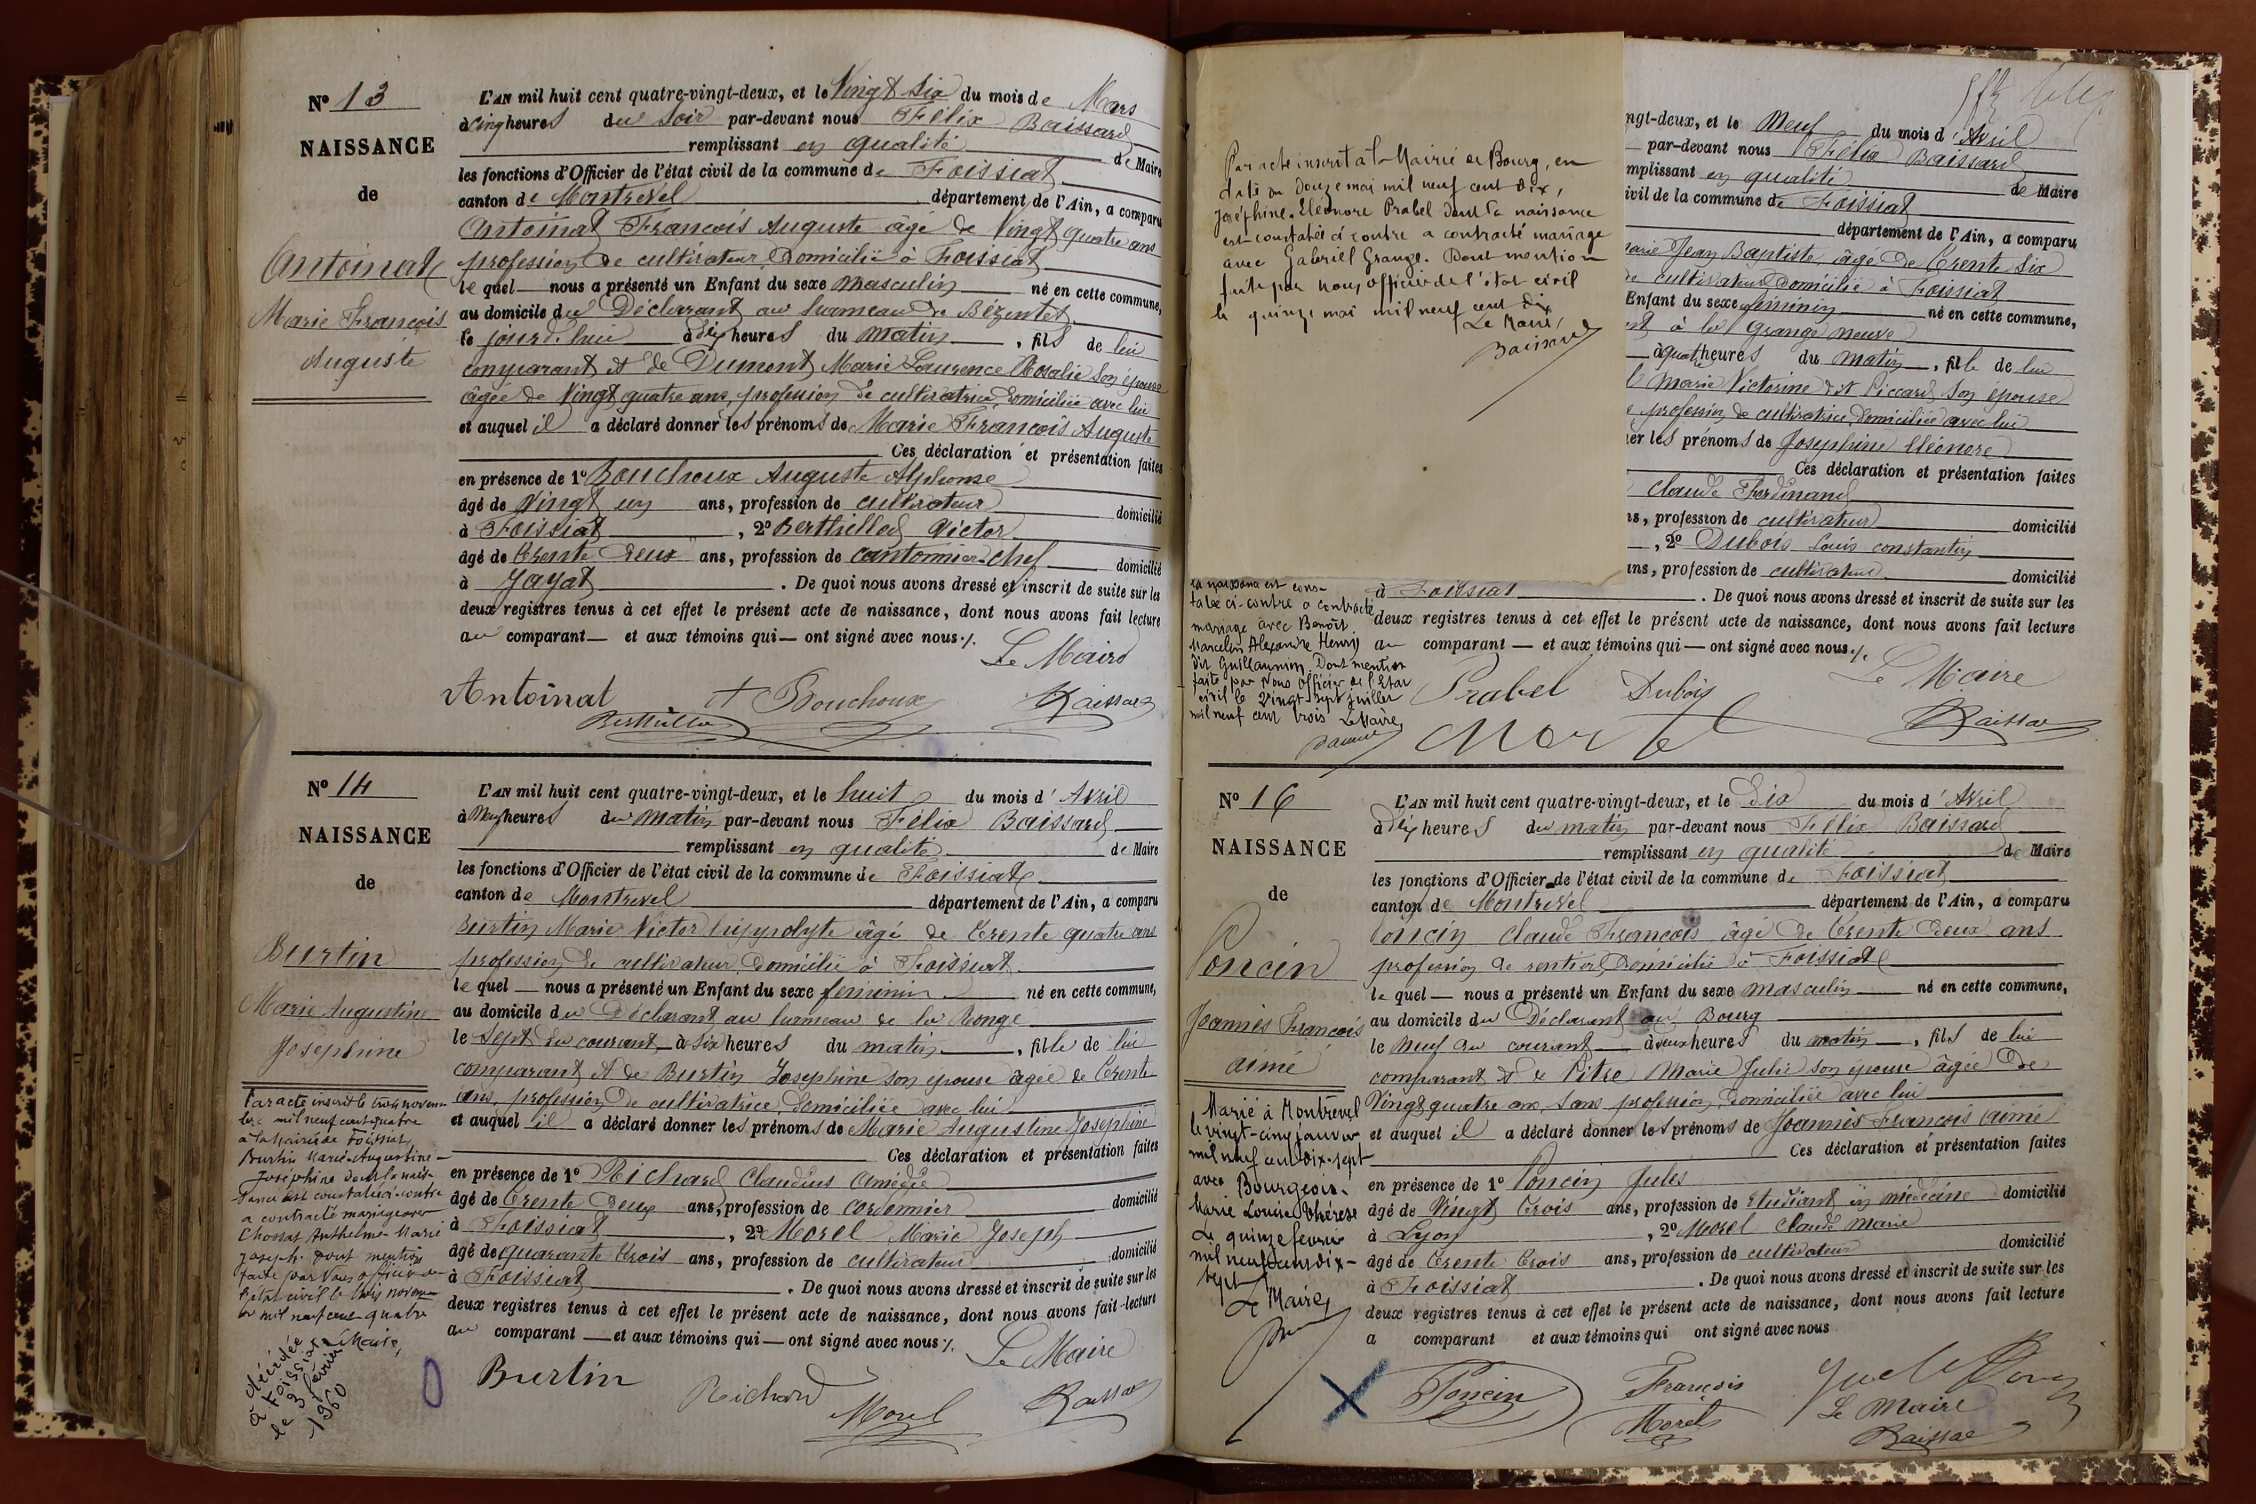 Nº 13
NAISSANCE
de
Antoinat
Marie François
Auguste
L'AN mil huit cent quatre-vingt-deux, et le Vingt Six du mois de Mars
à Cinq heures du Soir par-devant nous Félix Baissard
remplissant en qualité de Maire
les fonctions d'Officier de l'état civil de la commune de Foissiat
canton de Montrevel département de l'Ain, a comparu
Antoinat François Auguste âgé de Vingt quatre ans
profession de cultivateur Domicilié à Foissiat
lequel nous a présenté un Enfant du sexe masculin né en cette commune,
au domicile du Déclarant au hameau de Bézentet
le jourd'hui à dix heures du matin, fils de lui
comparant et de Dumont Marie Laurence Rosalie son épouse
âgée de Vingt quatre ans, profession de cultivatrice, domiciliée avec lui
et auquel il a déclaré donner les prénoms de Marie François Auguste
Ces déclaration et présentation faites
en présence de 1º Bouchoux Auguste Alphonse
âgé de Vingt un ans, profession de cultivateur domicilié
à Foissiat, 2º Berthillod Victor
âgé de trente deux ans, profession de cantonnier chef domicilié
à Jayat. De quoi nous avons dressé et inscrit de suite sur les
deux registres tenus à cet effet le présent acte de naissance, dont nous avons fait lecture
au comparant — et aux témoins qui — ont signé avec nous ./.
Le Maire
Antoinat A Bouchoux Baissard
Berthillod
Nº 14
NAISSANCE
de
Burtin
Marie Augustine
Josephine
Par acte inscrit le trois novem-
bre mil neuf cent quatre
à la Mairie de Foissiat
Burtin Marie-Augustine-
Joséphine dont la nais-
sance est constatée ci-contre
a contracté mariage avec
Chossat Anthelme Marie
Joseph. dont mention
faite par Nous officier de
l'état civil le trois novem-
bre mil neuf cent quatre
Le Maire,
décédée
à Foissiat
le 3 février
1960
L'AN mil huit cent quatre-vingt-deux, et le huit du mois d'Avril
à Neuf heures du matin par-devant nous Félix Baissard
remplissant en qualité de Maire
les fonctions d'Officier de l'état civil de la commune de Foissiat
canton de Montrevel département de l'Ain, a comparu
Burtin Marie Victor hippolyte âgé de trente quatre ans
profession de cultivateur, domicilié à Foissiat
lequel — nous a présenté un Enfant du sexe feminin né en cette commune,
au domicile du Déclarant au hameau de la Ronge
le Sept du courant à six heures du matin, fille de lui
comparant et de Burtin Josephine son épouse âgée de trente
ans, profession de cultivatrice, domiciliée avec lui
et auquel il a déclaré donner les prénoms de Marie Augustine Josephine
Ces déclaration et présentation faites
en présence de 1º Richard Claudius Amédée
âgé de trente deux ans, profession de cordonnier domicilié
à Foissiat, 2º Morel Marie Joseph
âgé de quarante trois ans, profession de cultivateur domicilié
à Foissiat. De quoi nous avons dressé et inscrit de suite sur les
deux registres tenus à cet effet le présent acte de naissance, dont nous avons fait lecture
au comparant — et aux témoins qui — ont signé avec nous ./.
Le Maire
Burtin Richard Morel Baissard
Par acte inscrit à la Mairie de Bourg, en
date du douze mai mil neuf cent dix,
Joséphine-Eléonore Prabel dont la naissance
est constatée ci contre a contracté mariage
avec Gabriel Grange. Dont mention
faite par nous, officier de l'état civil
le quinze mai mil neuf cent dix
Le Maire,
Baissard
la naissance est cons-
tatée ci-contre a contracté
mariage avec Benoît
Marcelin Alexandre Henry
dit Guillaumin. Dont mention
faite par Nous Officier de l'Etat
civil le vingt-sept juillet
mil neuf cent trois Le Maire,
ngt-deux, et le Neuf du mois d'Avril
par-devant nous Félix Baissard
mplissant en qualité de Maire
ivil de la commune de Foissiat
département de l'Ain, a comparu
Marie Jean Baptiste, âgé de trente six
de cultivateur domicilié à Foissiat
Enfant du sexe féminin né en cette commune,
à la Grange neuve
à quatre heures du matin, fille de lui
Marie Victorine dit Piccard son épouse
profession de cultivatrice domiciliée avec lui
er les prénoms de Josephine Eléonore
Ces déclaration et présentation faites
Claude Ferdinand
ns, profession de cultivateur domicilié
, 2º Dubois Louis constantin
ans, profession de cultivateur domicilié
à Foissiat. De quoi nous avons dressé et inscrit de suite sur les
deux registres tenus à cet effet le présent acte de naissance, dont nous avons fait lecture
au comparant — et aux témoins qui — ont signé avec nous ./.
Le Maire
Prabel Dubois
Morel Baissard
Nº 16
NAISSANCE
de
Poncin
Joannès François
aimé
Marié à Montrevel
le vingt-cinq janvier
mil neuf cent dix-sept
avec Bourgeois
Marie Louise Thérèse
Le quinze février
mil neuf cent dix-
sept
Le Maire,
L'AN mil huit cent quatre-vingt-deux, et le Dix du mois d'Avril
à Dix heures du matin par-devant nous Félix Baissard
remplissant en qualité de Maire
les fonctions d'Officier de l'état civil de la commune de Foissiat
canton de Montrevel département de l'Ain, a comparu
Poncin Claude François âgé de trente deux ans
profession de rentier, Domicilié à Foissiat
lequel — nous a présenté un Enfant du sexe masculin né en cette commune,
au domicile du Déclarant au Bourg
le Neuf du courant à deux heures du matin, fils de lui
comparant et de Pitre Marie Julie son épouse âgée de
Vingt quatre ans, sans profession, domiciliée avec lui
et auquel il a déclaré donner les prénoms de Joannès François aimé
Ces déclaration et présentation faites
en présence de 1º Poncin Jules
âgé de Vingt trois ans, profession de Etudiant en médecine domicilié
à Lyon, 2º Morel Claude Marie
âgé de trente trois ans, profession de cultivateur domicilié
à Foissiat. De quoi nous avons dressé et inscrit de suite sur les
deux registres tenus à cet effet le présent acte de naissance, dont nous avons fait lecture
a comparant et aux témoins qui ont signé avec nous
Poncin François
Morel
Le Maire
Baissard